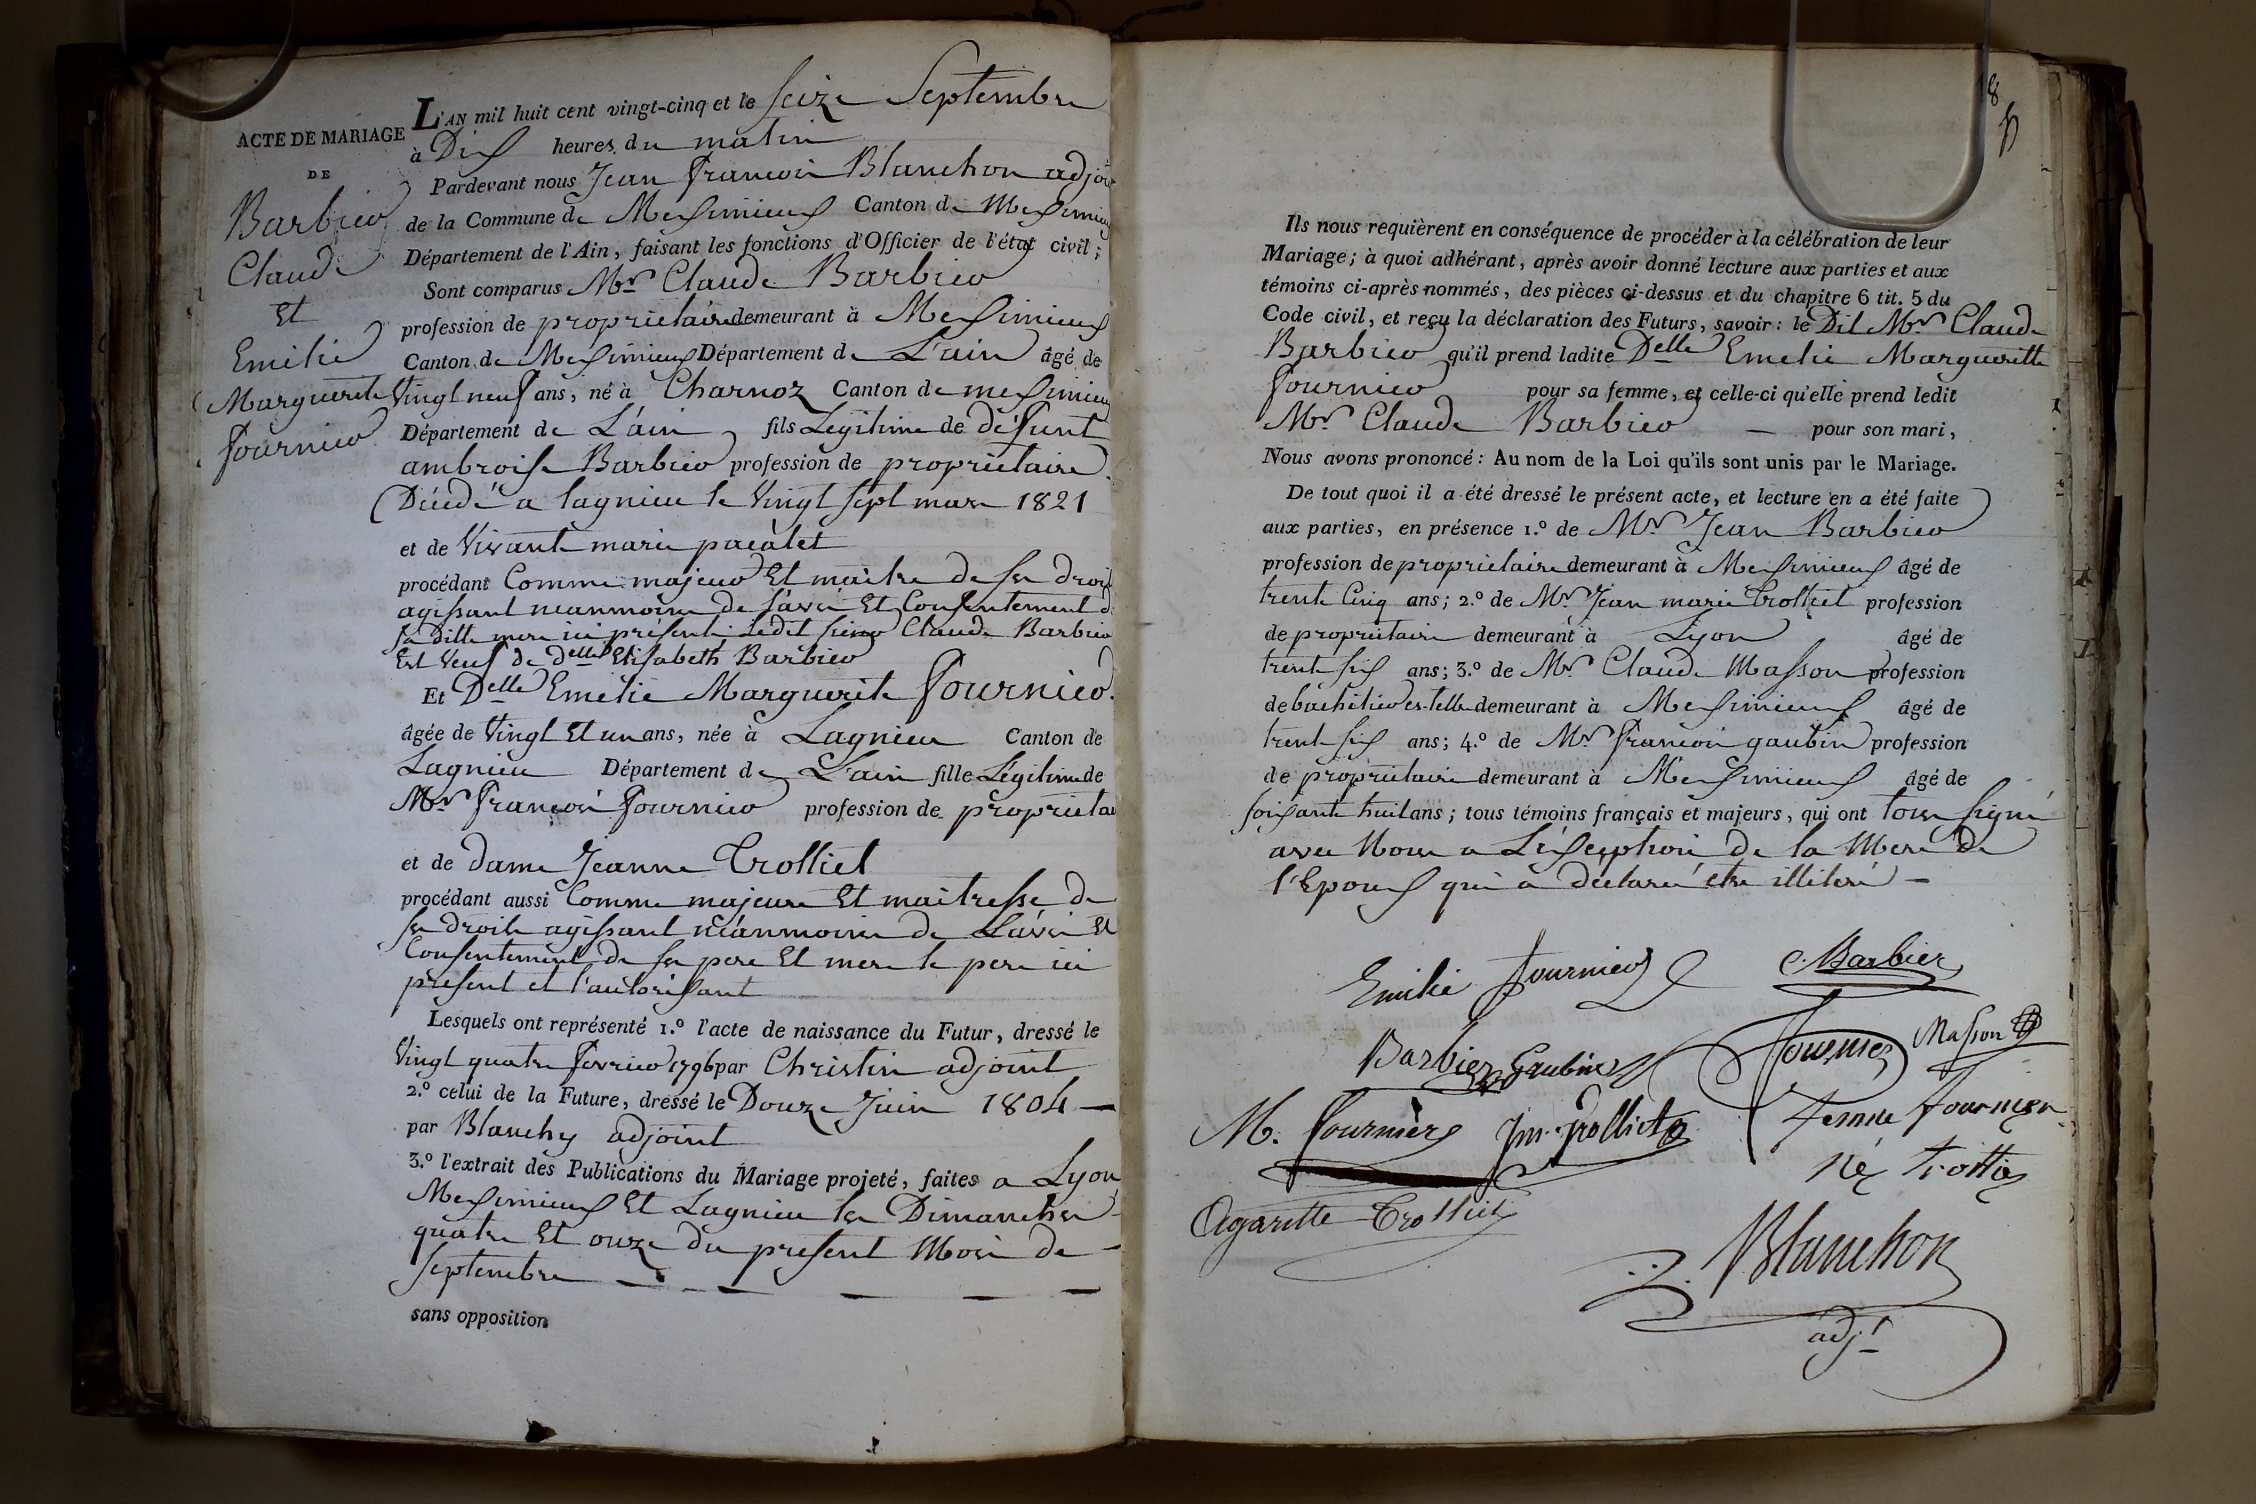 ACTE DE MARIAGE
DE
Barbier
Claude
Et
Emilie
Marguerite
fournier
L'AN mil huit cent vingt-cinq et le Seize Septembre
à Dix heures du matin
Pardevant nous Jean françois Blanchon adjoint
de la Commune de Meximieux Canton de Meximieux
Département de l'Ain, faisant les fonctions d'Officier de l'état civil;
Sont comparus Mr Claude Barbier
profession de propriétaire demeurant à Meximieux
Canton de Meximieux Département de L'ain âgé de
Vingt neuf ans, né à Charnoz Canton de meximieux
Département de L'ain fils Légitime de défunt
ambroise Barbier profession de propriétaire
Décédé a lagnieu le Vingt sept mars 1821
et de Vivante marie pacalet
procédant Comme majeur Et maitre de ses droits
agissant néanmoins de l'avis Et Consentement de
sa ditte mere ici présente Ledit sieur Claude Barbier
Est Veuf de delle Elisabeth Barbier
Et Delle Emélie Marguerite fournier.
âgée de Vingt Et un ans, née à Lagnieu Canton de
Lagnieu Département de L'ain fille Légitime de
Mr françois fournier profession de propriétaire
et de dame Jeanne Trolliet
procédant aussi Comme majeure Et maitresse de
ses droits agissant néanmoins de L'avis Et
Consentement de ses pere Et mere le pere ici
présent et l'autorisant
Lesquels ont représenté 1.º l'acte de naissance du Futur, dressé le
Vingt quatre fevrier 1796 par Christin adjoint
2.º celui de la Future, dressé le Douze Juin 1804 —
par Blanchy adjoint
3.º l'extrait des Publications du Mariage projeté, faites a Lyon
Meximieux Et Lagnieu les Dimanches
quatre Et onze du present Mois de
septembre — — — — —
sans opposition
Ils nous requièrent en conséquence de procéder à la célébration de leur
Mariage; à quoi adhérant, après avoir donné lecture aux parties et aux
témoins ci-après nommés, des pièces ci-dessus et du chapitre 6 tit. 5 du
Code civil, et reçu la déclaration des Futurs, savoir: le Dit Mr Claude
Barbier qu'il prend ladite Delle Emelie Margueritte
fournier pour sa femme, et celle-ci qu'elle prend ledit
Mr Claude Barbier — pour son mari,
Nous avons prononcé: Au nom de la Loi qu'ils sont unis par le Mariage.
De tout quoi il a été dressé le présent acte, et lecture en a été faite
aux parties, en présence 1.º de Mr Jean Barbier
profession de propriétaire demeurant à Meximieux âgé de
trente Cinq ans; 2.º de Mr Jean marie Trolliet profession
de propriétaire demeurant à Lyon âgé de
trente six ans; 3.º de Mr Claude Masson profession
de bachelier es-lettre demeurant à Meximieux âgé de
trente six ans; 4.º de Mr françois gaubin profession
de propriétaire demeurant à Meximieux âgé de
soixante huit ans; tous témoins français et majeurs, qui ont tous signé
avec Nous a L'éxception de la Mere de
l'Epoux qui a déclaré être illiteré —
Emilie fournier C. Barbier
Barbier Gaubin fournier Masson
M. fournier Jm. Trolliet femme fournier
né trollie
Agaritte Trolliet
Blanchon
adj.t